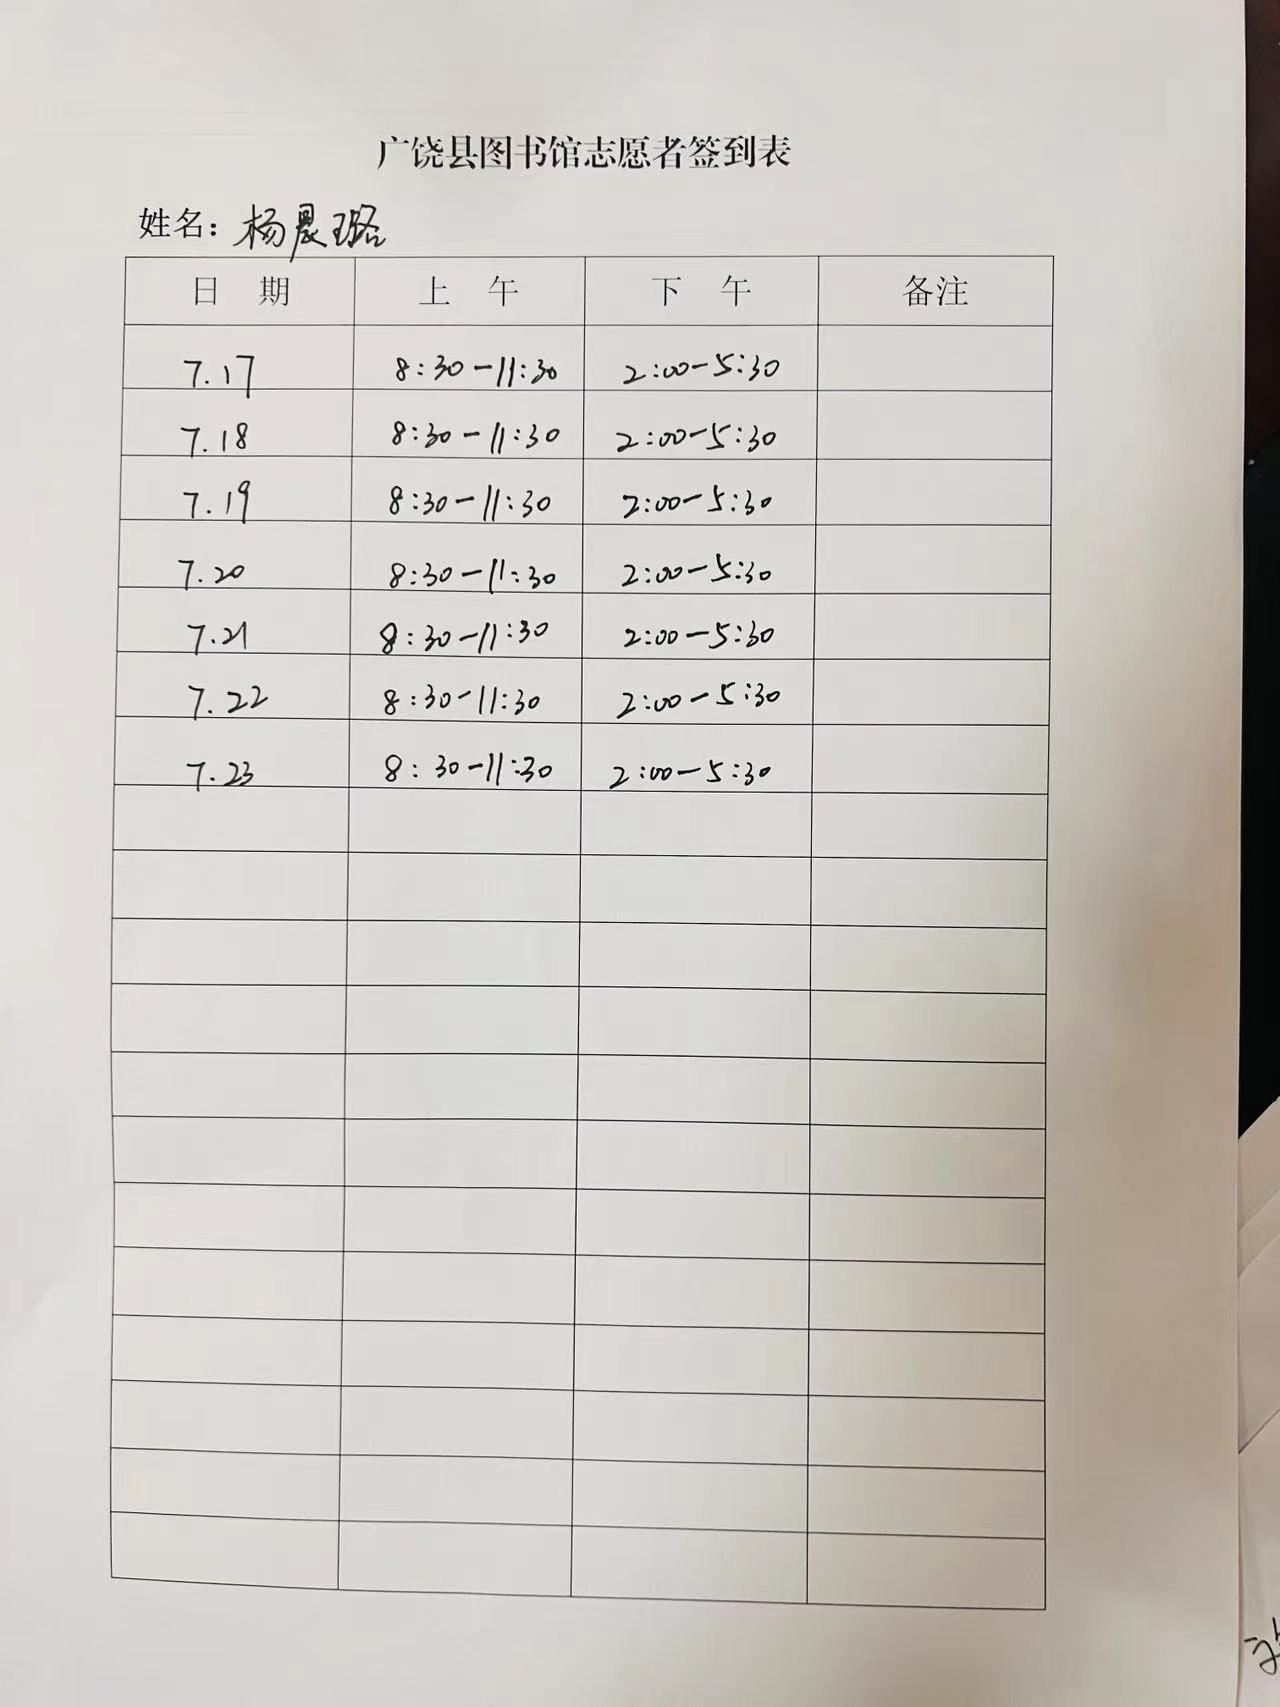 广饶县图书馆志愿者签到表
姓名：杨晨璐
日 期 上 午 下 午 备注
7.17 8:30-11:30 2:00-5:30
7.18 8:30-11:30 2:00-5:30
7.19 8:30-11:30 2:00-5:30
7.20 8:30-11:30 2:00-5:30
7.21 8:30-11:30 2:00-5:30
7.22 8:30-11:30 2:00-5:30
7.23 8:30-11:30 2:00-5:30